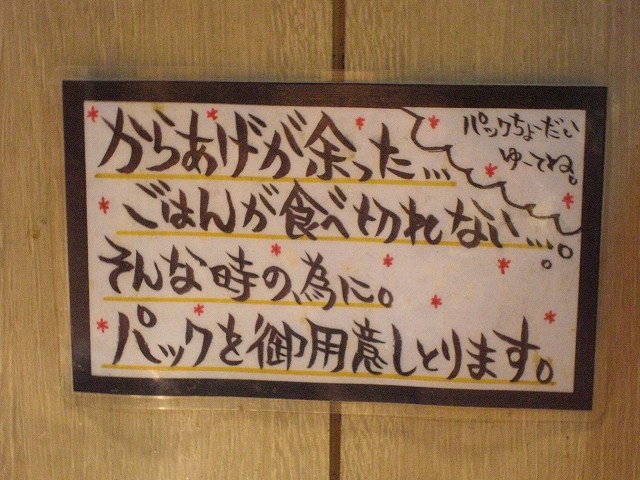 からあげが余った...
ごはんが食べ切れない...。
そんな時の為に。
パックを御用意しとります。
パックちょーだい
ゆーてね。